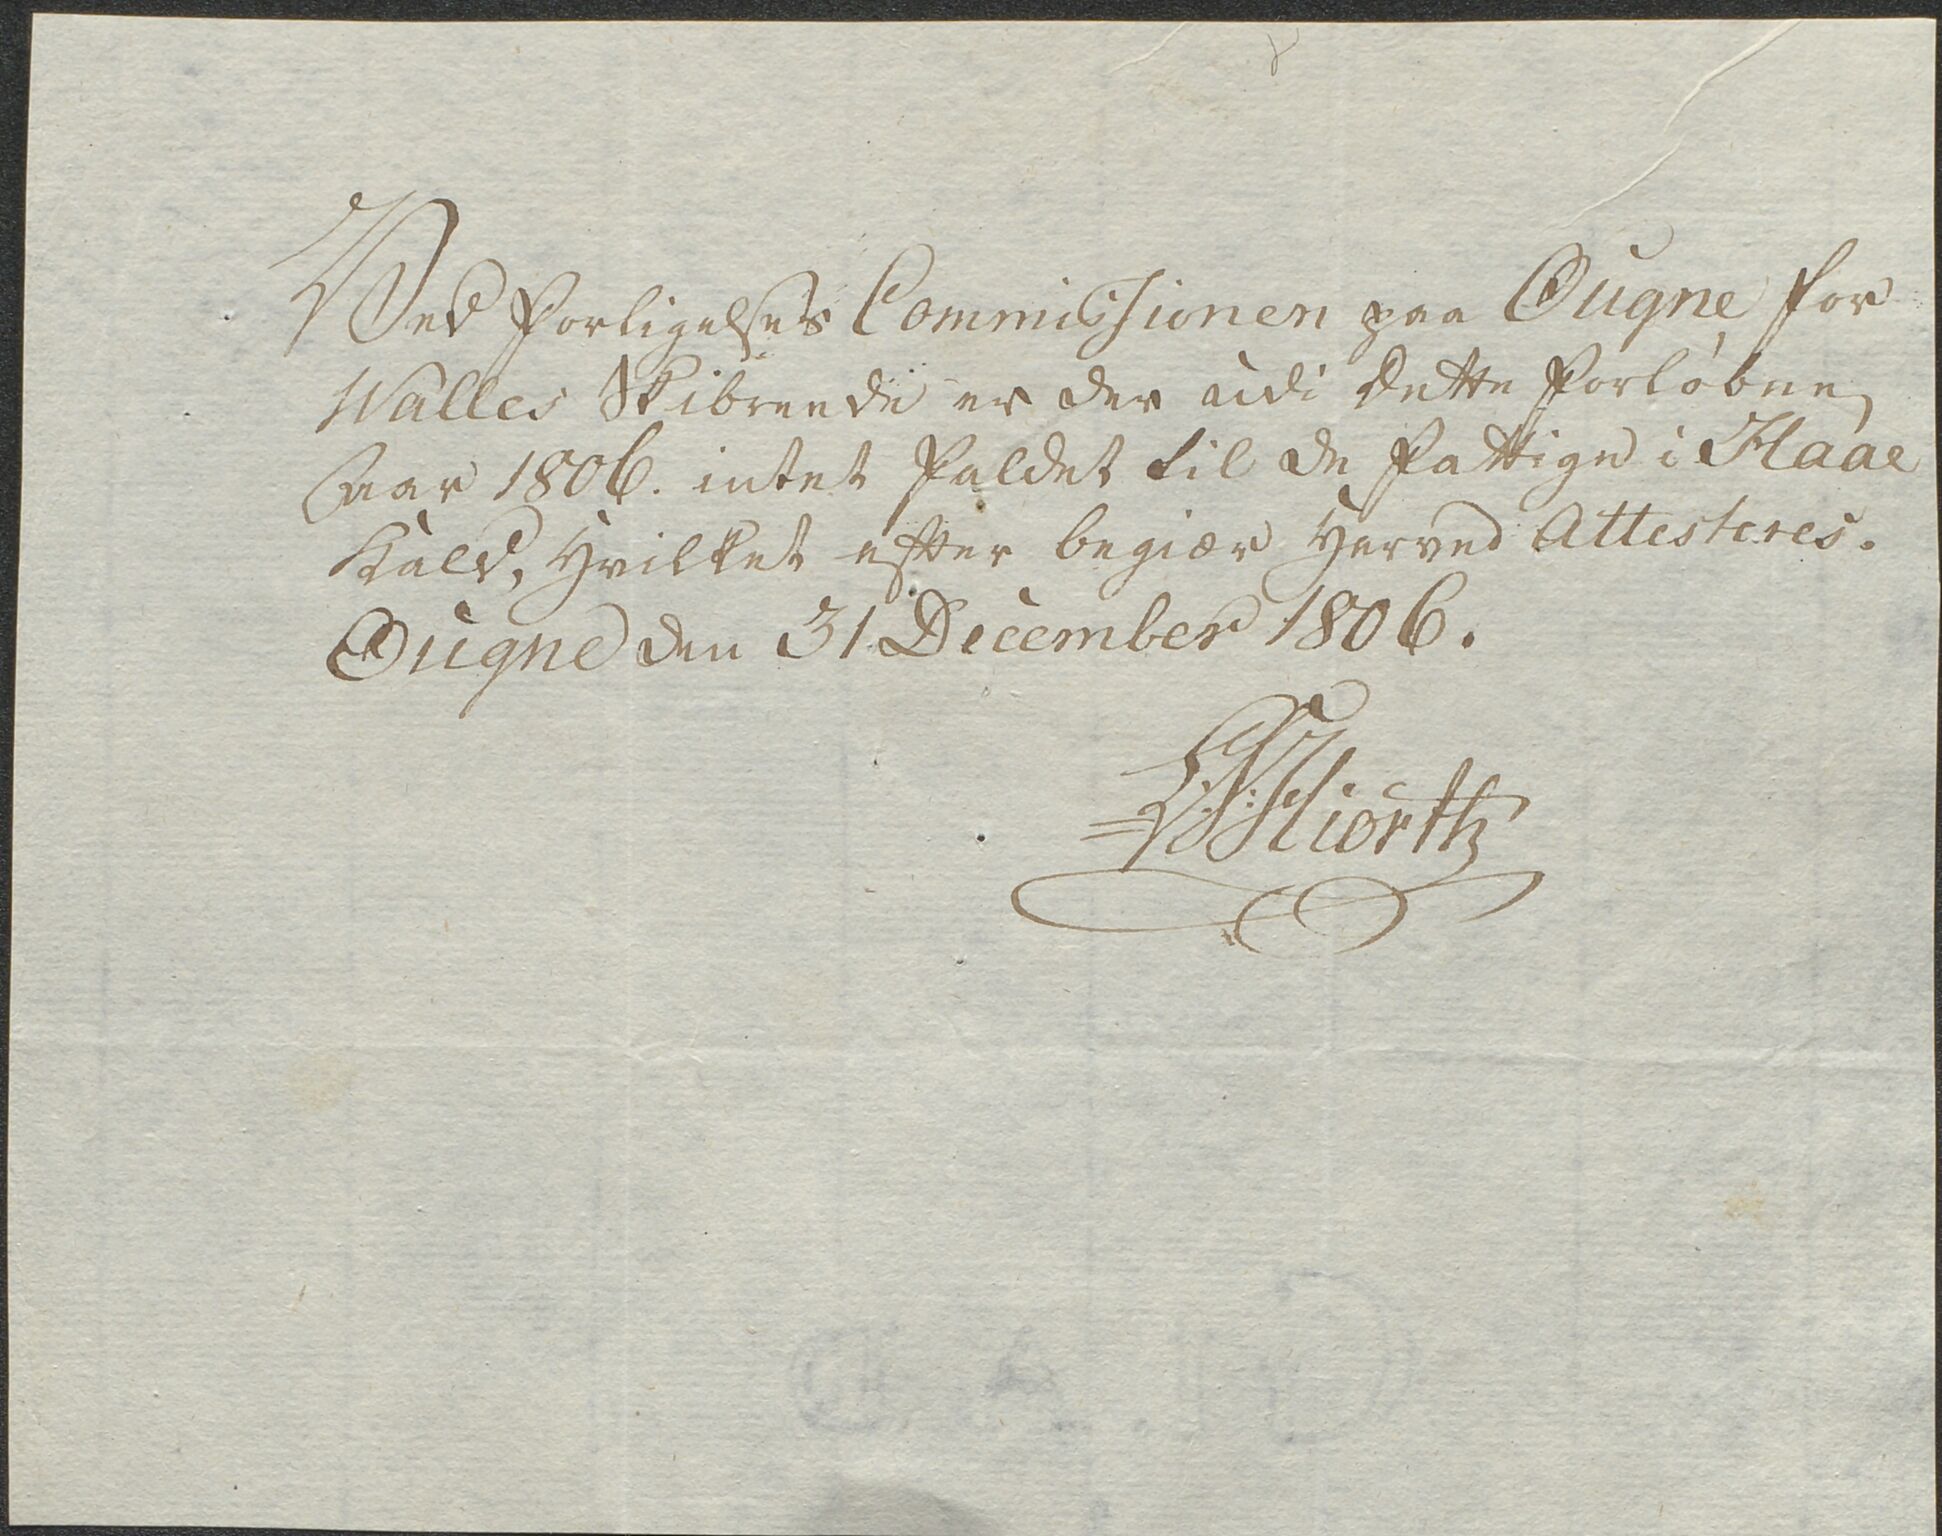 Ved Forligelses Commissionen paa Ougne for
Walles Skibreede er der udi dette forløbne
Aar 1806. intet faldet til de fattige i Haae
Kald, Hvilket efter begiær Herved Attesteres.
Ougne den 31 December 1806.
Hiorth